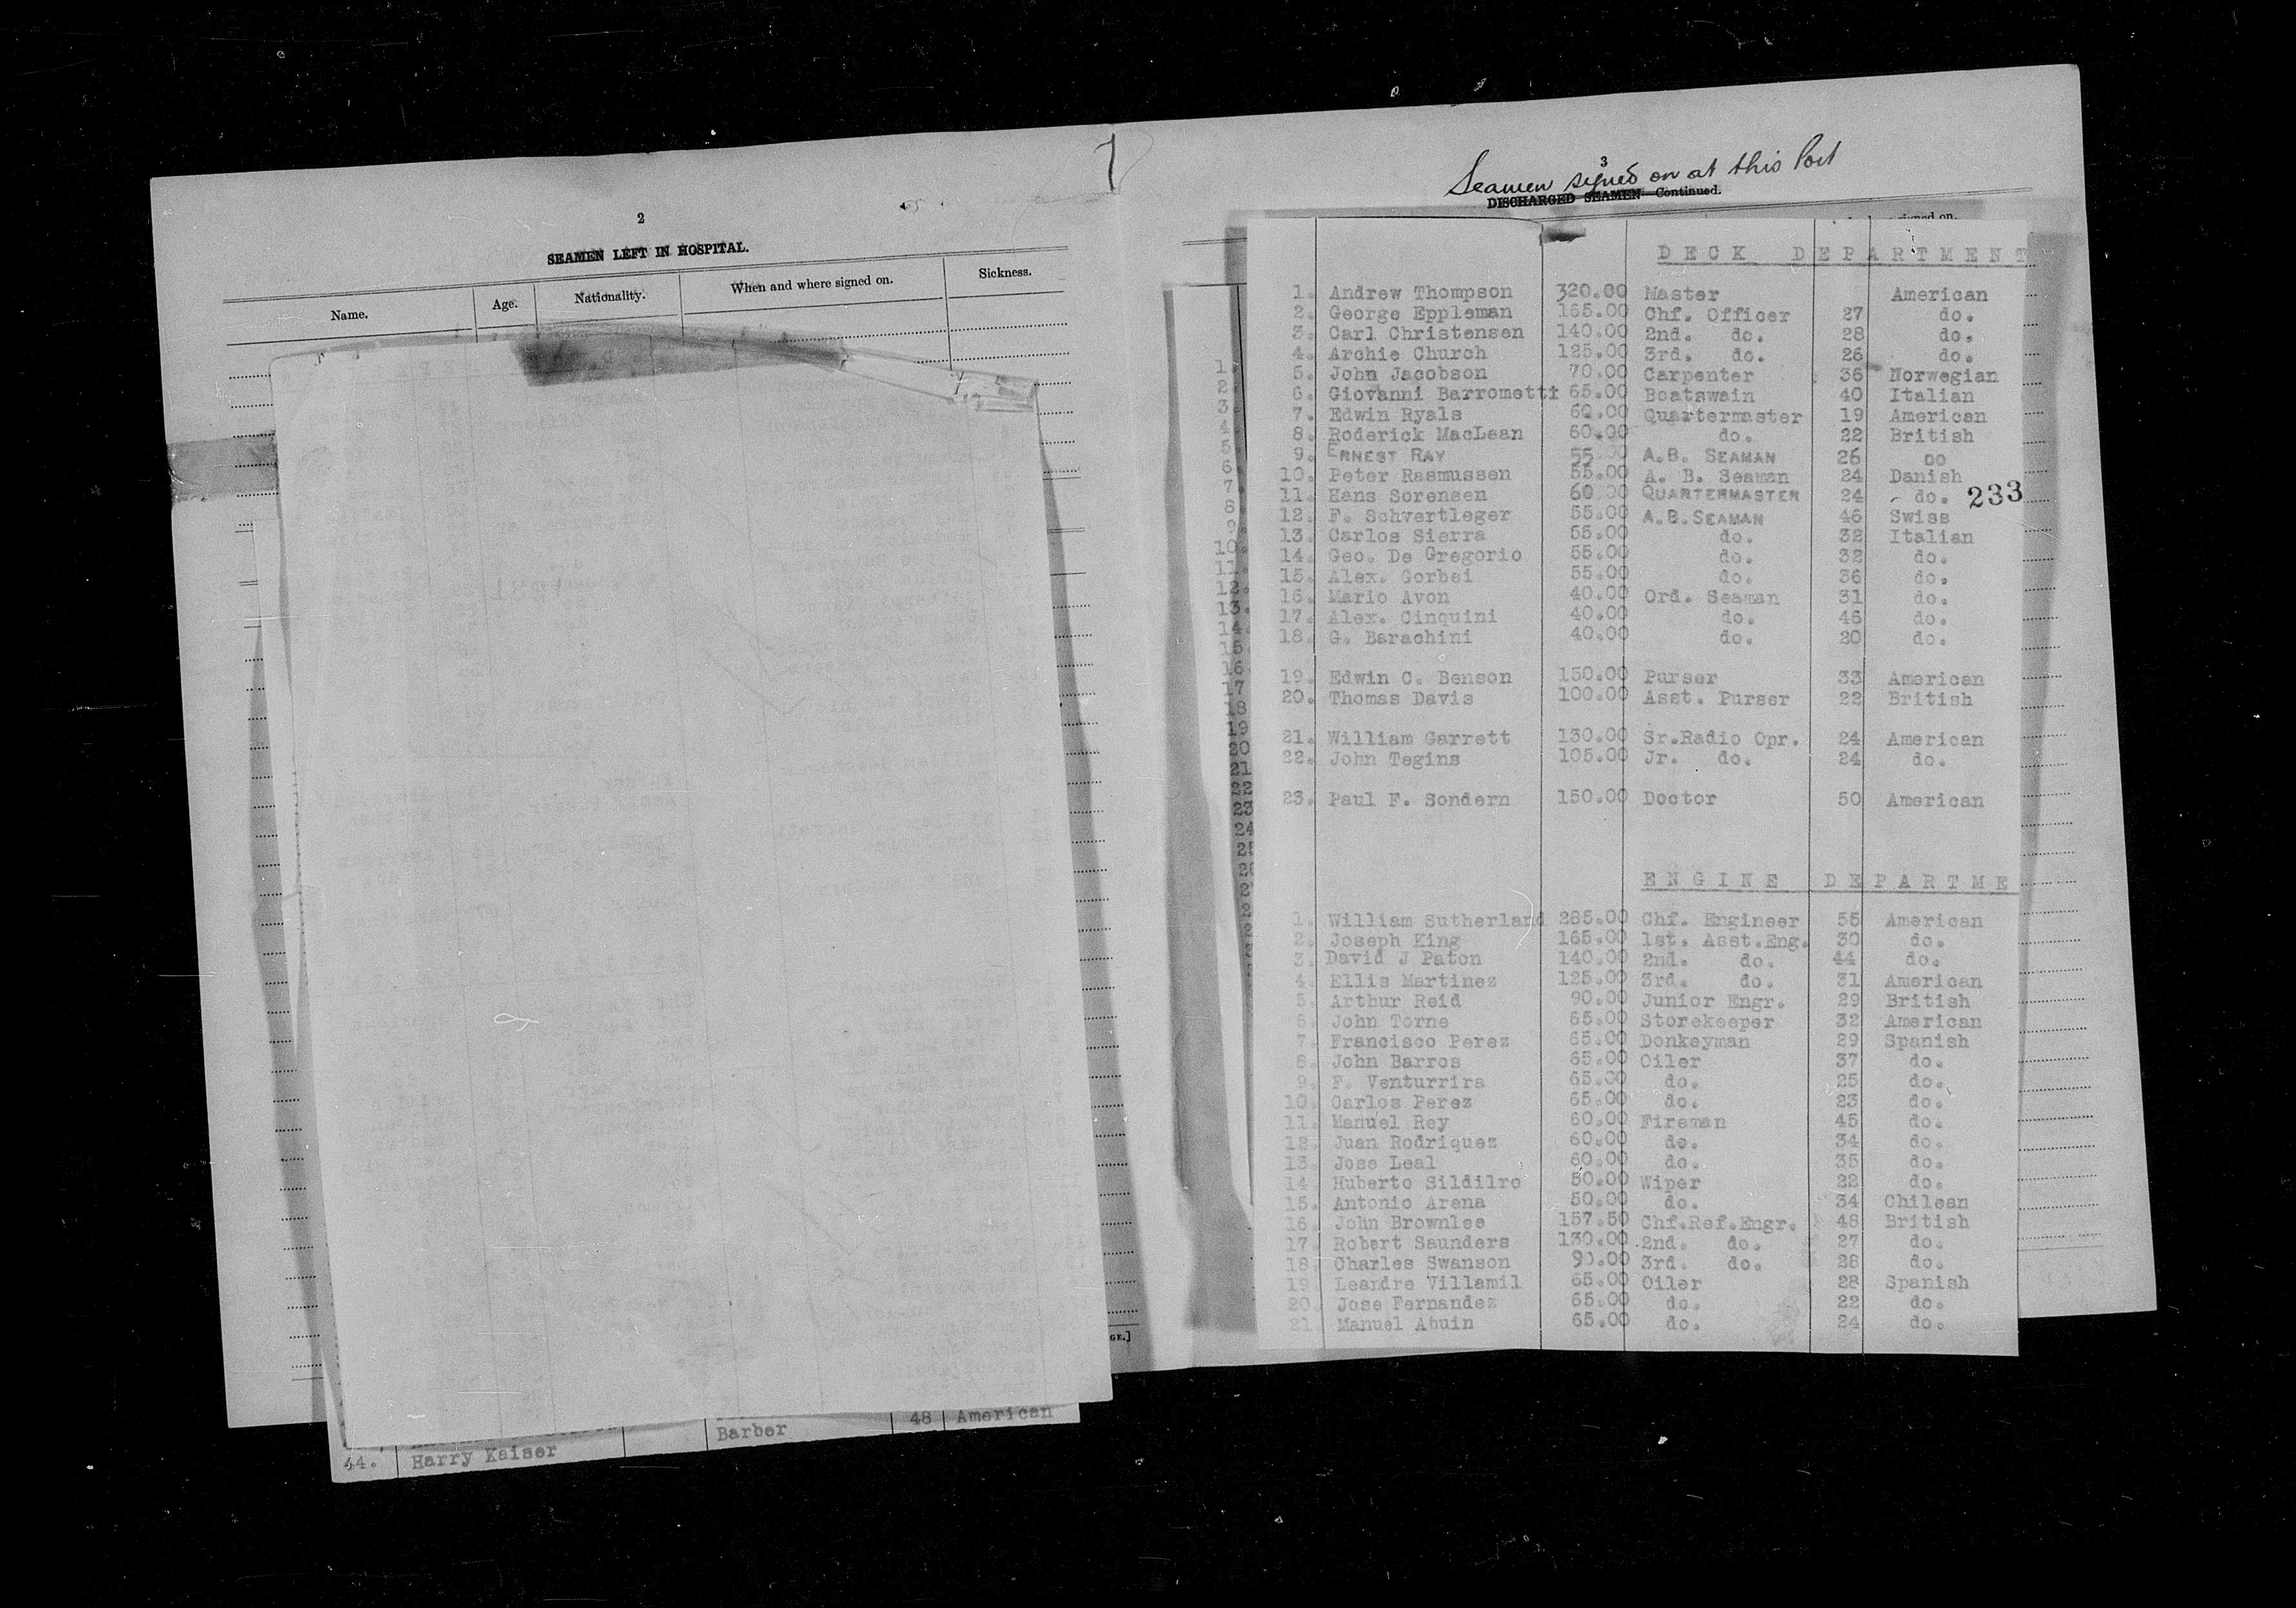 2
SEAMEN LEFT IN HOSPITAL.
Name. Age. Nationality. When and where signed on. Sickness.
48 American
44. Harry Kaiser Barber
GE.]
3
Seamen signed on at this Port
DISCHARGED SEAMEN—Continued.
signed on.
DECK DEPARTMENT
1. Andrew Thompson 320.00 Master American
2. George Eppleman 165.00 Chf. Officer 27 do.
3. Carl Christensen 140.00 2nd. do. 28 do.
4. Archie Church 125.00 3rd. do. 26 do.
5. John Jacobson 70.00 Carpenter 36 Norwegian
6. Giovanni Barrometti 65.00 Boatswain 40 Italian
7. Edwin Ryals 60.00 Quartermaster 19 American
8. Roderick MacLean 60.00 do. 22 British
9. ERNEST RAY 55.00 A.B. SEAMAN 26 DO
10. Peter Rasmussen 55.00 A. B. Seaman 24 Danish
11. Hans Sorensen 60.00 QUARTERMASTER 24 do. 233
12. F. Schvertleger 55.00 A.B. SEAMAN 46 Swiss
13. Carlos Sierra 55.00 do. 32 Italian
14. Geo. De Gregorio 55.00 do. 32 do.
15. Alex. Gorbei 55.00 do. 36 do.
16. Mario Avon 40.00 Ord. Seaman 31 do.
17. Alex. Cinquini 40.00 do. 46 do.
18. G. Barachini 40.00 do. 20 do.
19. Edwin C. Benson 150.00 Purser 33 American
20. Thomas Davis 100.00 Asst. Purser 22 British
21. William Garrett 130.00 Sr.Radio Opr. 24 American
22. John Tegins 105.00 Jr. do. 24 do.
23. Paul F. Sondern 150.00 Doctor 50 American
ENGINE DEPARTME
1. William Sutherland 285.00 Chf. Engineer 55 American
2. Joseph King 165.00 1st. Asst.Eng. 30 do.
3. David J Paton 140.00 2nd. do. 44 do.
4. Ellis Martinez 125.00 3rd. do. 31 American
5. Arthur Reid 90.00 Junior Engr. 29 British
6. John Torne 65.00 Storekeeper 32 American
7. Francisco Perez 65.00 Donkeyman 29 Spanish
8. John Barros 65.00 Oiler 37 do.
9. F. Venturrira 65.00 do. 25 do.
10. Carlos Perez 65.00 do. 23 do.
11. Manuel Rey 60.00 Fireman 45 do.
12. Juan Rodriquez 60.00 do. 34 do.
13. Jose Leal 60.00 do. 35 do.
14 Huberto Sildilro 50.00 Wiper 22 do.
15. Antonio Arena 50.00 do. 34 Chilean
16. John Brownlee 157.50 Chf.Ref.Engr. 48 British
17. Robert Saunders 130.00 2nd. do. 27 do.
18. Charles Swanson 90.00 3rd. do. 28 do.
19. Leandre Villamil 65.00 Oiler 28 Spanish
20. Jose Fernandez 65.00 do. 22 do.
21. Manuel Abuin 65.00 do. 24 do.